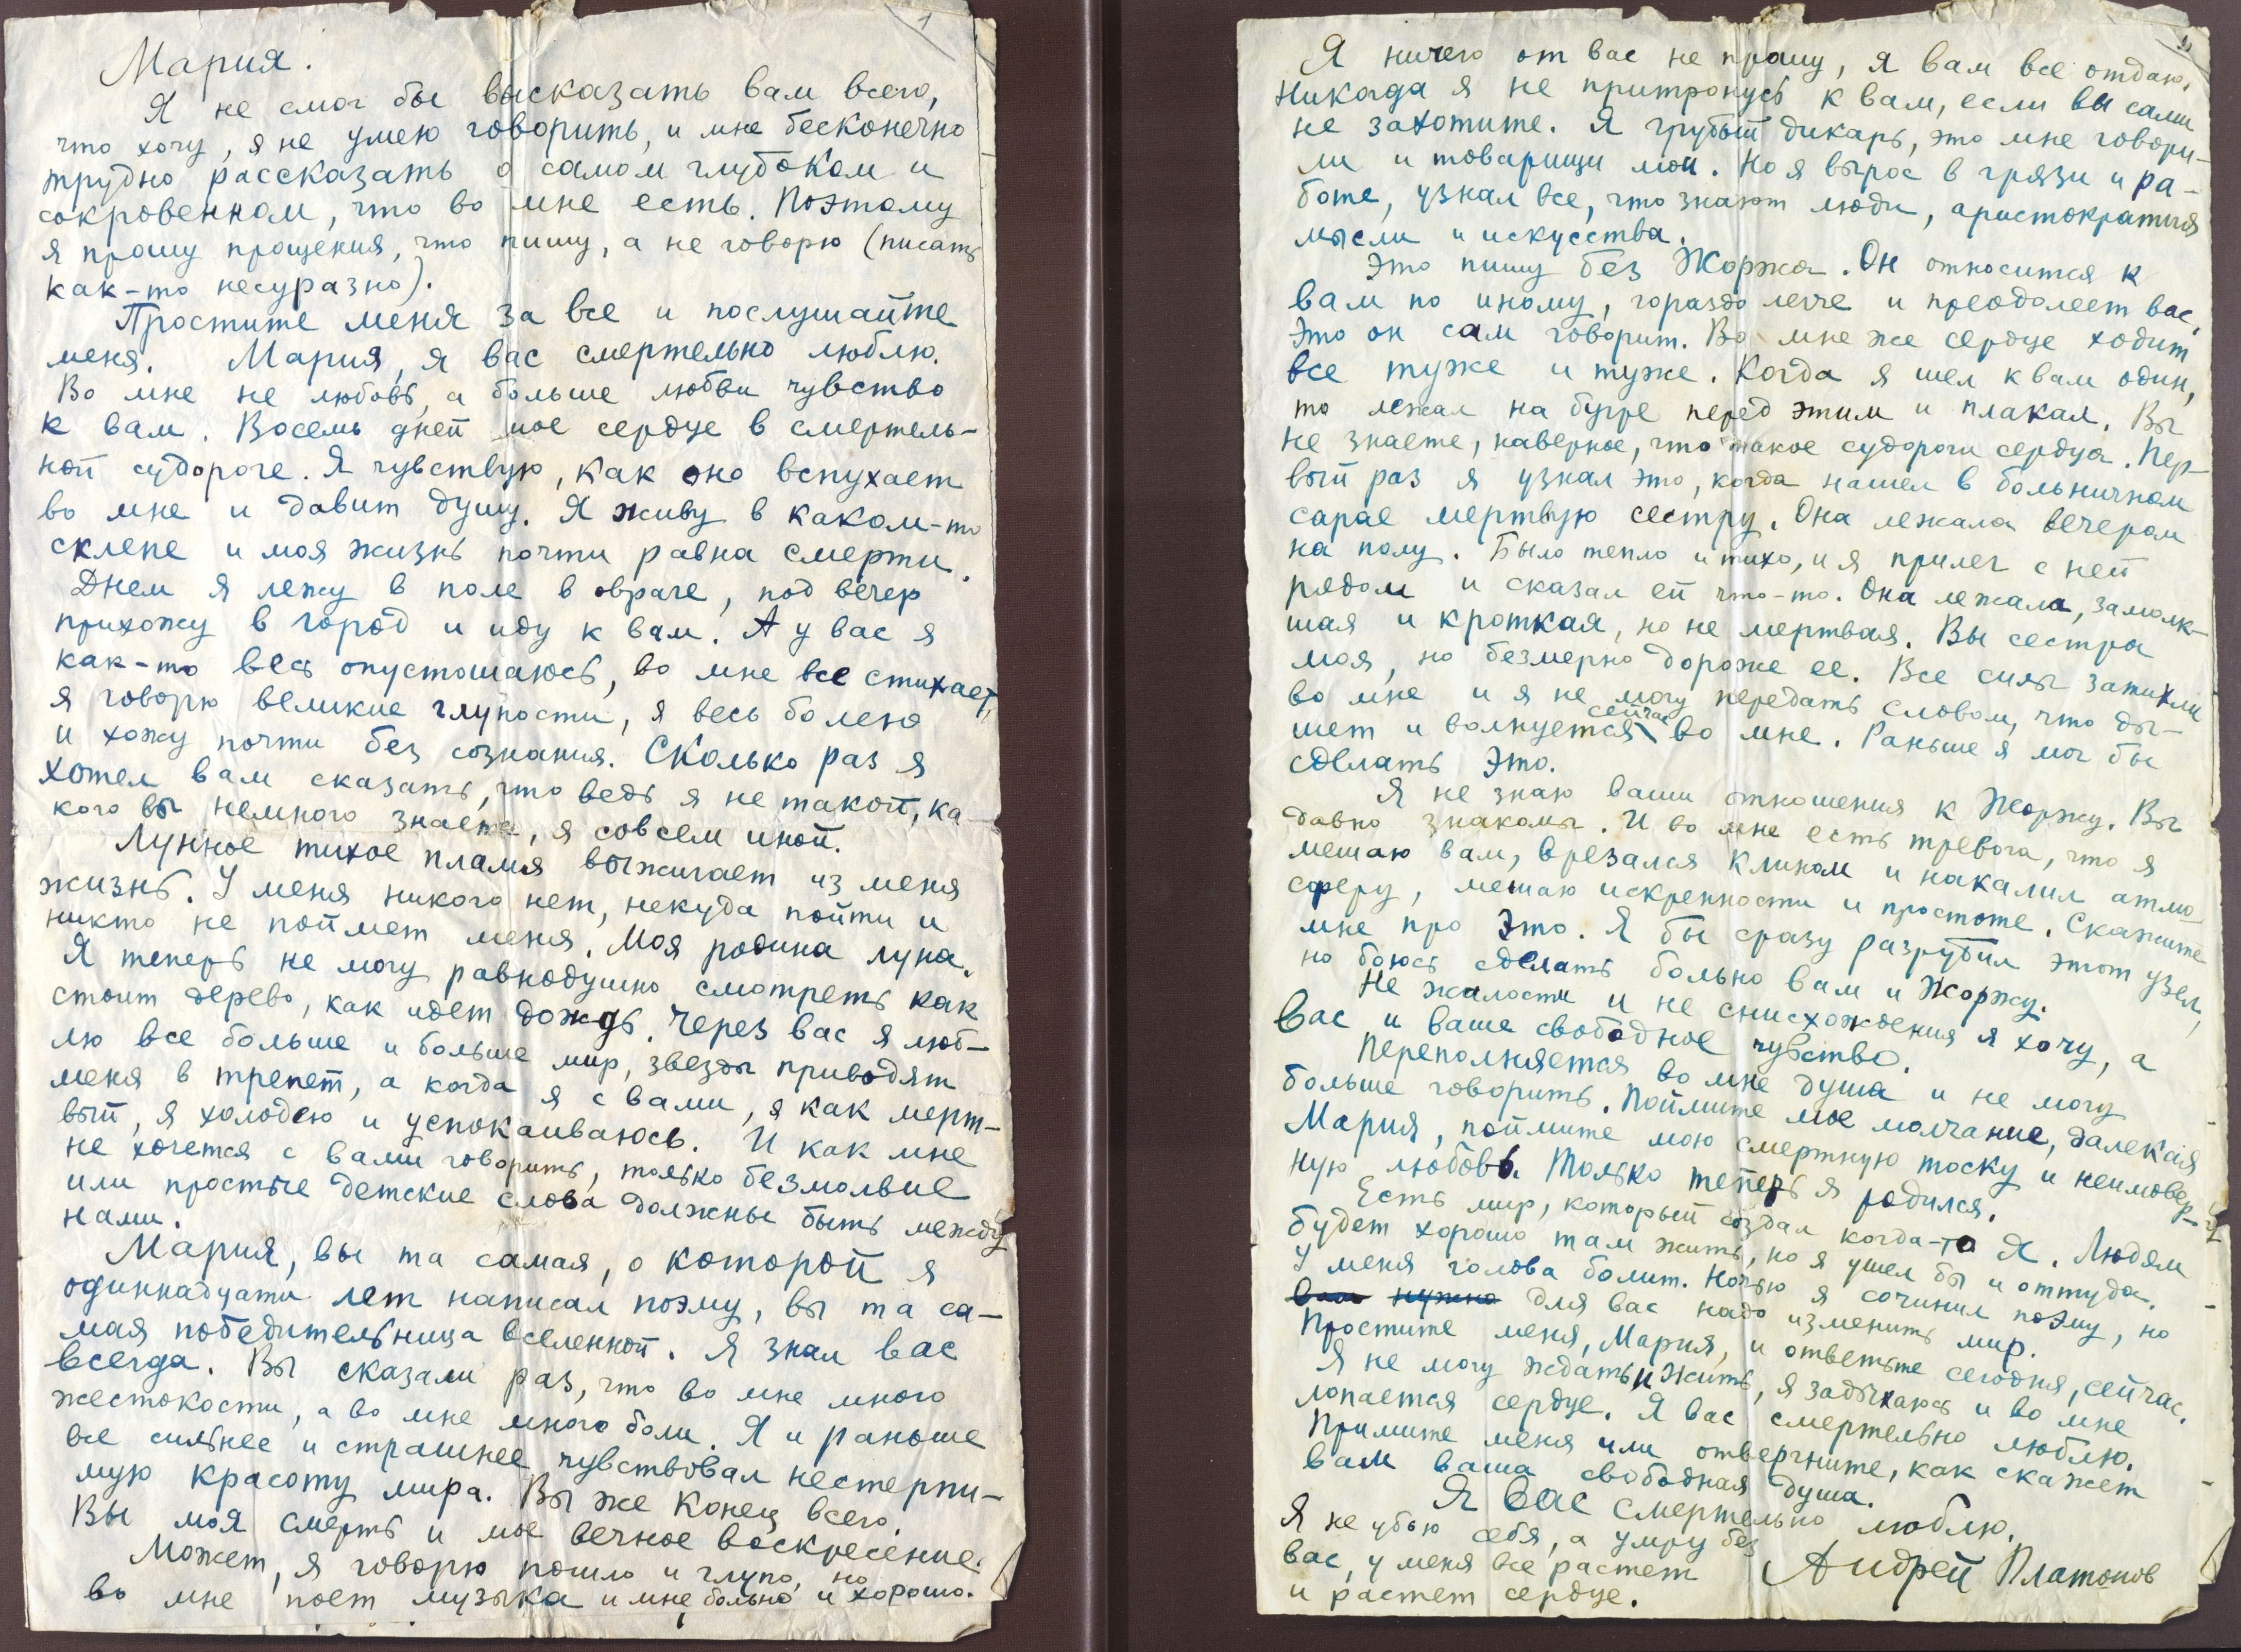 1
Мария.
Я не смог бы высказать вам всего,
что хочу, я не умею говорить, и мне бесконечно
трудно рассказать о самом глубоком и
сокровенном, что во мне есть. Поэтому
я прошу прощения, что пишу, а не говорю (писать
как-то несуразно).
Простите меня за все и послушайте
меня. Мария, я вас смертельно люблю.
Во мне не любовь, а больше любви чувство
к вам. Восемь дней мое сердце в смертель-
ной судороге. Я чувствую, как оно вспухает
во мне и давит душу. Я живу в каком-то
склепе и моя жизнь почти равна смерти.
Днем я лежу в поле в овраге, под вечер
прихожу в город и иду к вам. А у вас я
как-то весь опустошаюсь, во мне все стихает,
я говорю великие глупости, я весь болею
и хожу почти без сознания. Сколько раз я
хотел вам сказать, что ведь я не такой, ка-
кого вы немного знаете, я совсем иной.
Лунное тихое пламя выжигает из меня
жизнь. У меня никого нет, некуда пойти и
никто не поймет меня. Моя родина луна.
Я теперь не могу равнодушно смотреть как
стоит дерево, как идет дождь. Через вас я люб-
лю все больше и больше мир, звезды приводят
меня в трепет, а когда я с вами, я как мерт-
вый, я холодею и успокаиваюсь. И как мне
не хочется с вами говорить, только безмолвие
или простые детские слова должны быть между
нами.
Мария, вы та самая, о которой я
одиннадцати лет написал поэму, вы та са-
мая победительница вселенной. Я знал вас
всегда. Вы сказали раз, что во мне много
жестокости, а во мне много боли. Я и раньше
все сильнее и страшнее чувствовал нестерпи-
мую красоту мира. Вы же конец всего.
Вы моя смерть и мое вечное воскресение.
Может, я говорю пошло и глупо, но
во мне поет музыка и мне больно и хорошо.
Я ничего от вас не прошу, я вам все отдаю.
Никогда я не притронусь к вам, если вы сами
не захотите. Я грубый дикарь, это мне говори-
ли и товарищи мои. Но я вырос в грязи и ра-
боте, узнал все, что знают люди, аристократия
мысли и искусства.
Это пишу без Жоржа. Он относится к
вам по иному, гораздо легче и преодолеет вас.
Это он сам говорит. Во мне же сердце ходит
все туже и туже. Когда я шел к вам один,
то лежал на бугре перед этим и плакал. Вы
не знаете, наверное, что такое судороги сердца. Пер-
вый раз я узнал это, когда нашел в больничном
сарае мертвую сестру. Она лежала вечером
на полу. Было тепло и тихо, и я прилег с ней
рядом и сказал ей что-то. Она лежала, замолк-
шая и кроткая, но не мертвая. Вы сестра
моя, но безмерно дороже ее. Все силы затихли
во мне и я не могу передать словом, что ды-
шет и волнуется сейчас во мне. Раньше я мог бы
сделать это.
Я не знаю ваши отношения к Жоржу. Вы
давно знакомы. И во мне есть тревога, что я
мешаю вам, врезался клином и накалил атмо-
сферу, мешаю искренности и простоте. Скажите
мне про это. Я бы сразу разрубил этот узел,
но боюсь сделать больно вам и Жоржу.
Не жалости и не снисхождения я хочу, а
вас и ваше свободное чувство.
Переполняется во мне душа и не могу
больше говорить. Поймите мое молчание, далекая
Мария, поймите мою смертную тоску и неимовер-
ную любовь. Только теперь я родился.
Есть мир, который создал когда-то Я. Людям
будет хорошо там жить, но я ушел бы и оттуда.
У меня голова болит. Ночью я сочинил поэму, но
вам нужно для вас надо изменить мир.
Простите меня, Мария, и ответьте сегодня, сейчас.
Я не могу ждать и жить, я задыхаюсь и во мне
лопается сердце. Я вас смертельно люблю.
Примите меня или отвергните, как скажет
вам ваша свободная душа.
Я вас смертельно люблю.
Я не убью себя, а умру без
вас, у меня все растет
и растет сердце.
Андрей Платонов